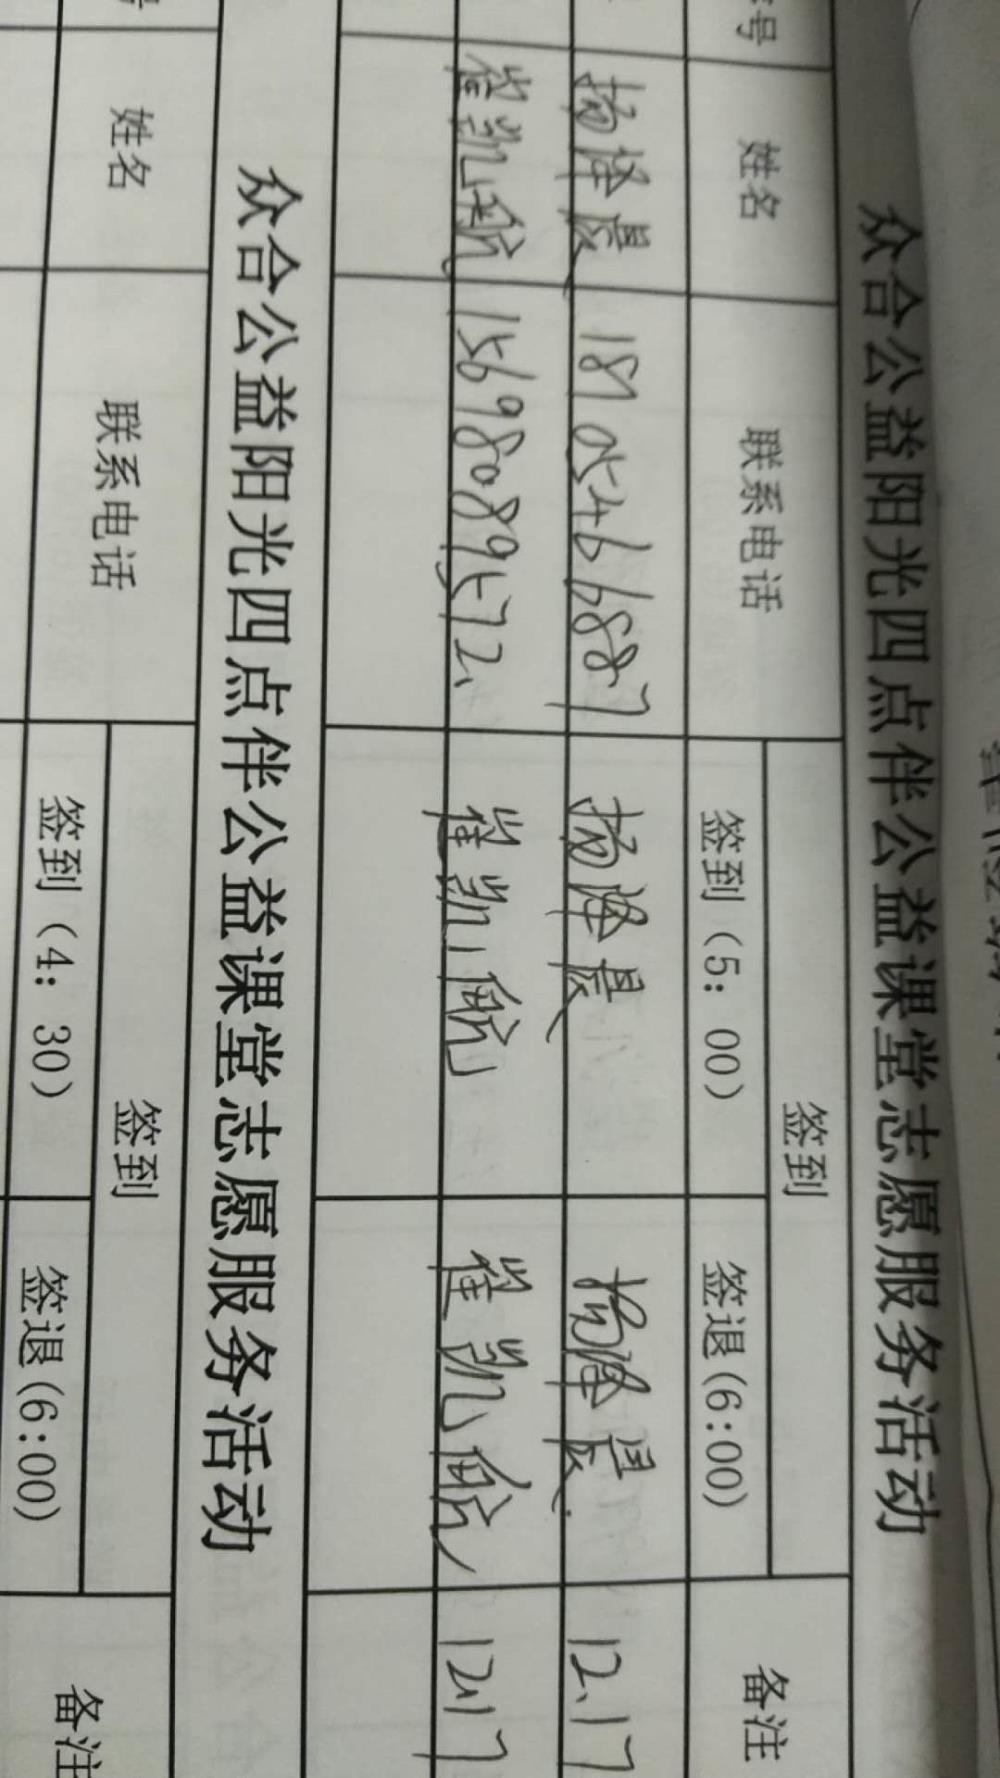 众合公益阳光四点伴公益课堂志愿服务活动
号 姓名 联系电话 签到 备注
签到（5：00） 签退(6:00)
杨泽晨 18705466887 杨泽晨 杨泽晨. 12.17
崔凯航 15698089572. 崔凯航 崔凯航 12.17
众合公益阳光四点伴公益课堂志愿服务活动
号 姓名 联系电话 签到 备注
签到（4：30） 签退(6:00)